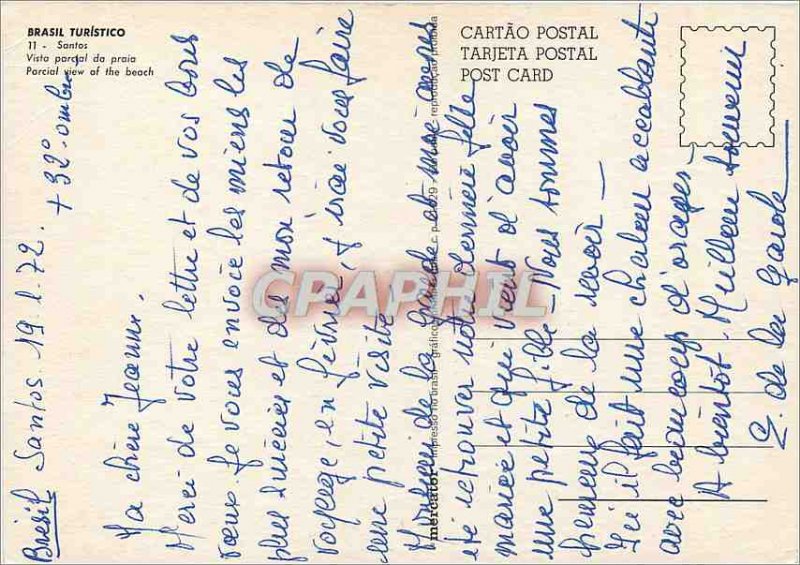 BRASIL TURÍSTICO
11 - Santos
Vista parcial da praia
Parcial view of the beach
CARTÃO POSTAL
TARJETA POSTAL
POST CARD
mercator impresso no brasil - gráficos reprodução proibida
CPAPHIL
Brésil Santos. 19.1.72. + 32° ombre
Ma chère Jeanne.
Merci de votre lettre et de vos bons
vœux je vous envoie les miens les
plus sincères et dès mon retour de
voyage, en février, j'irai vous faire
une petite visite.
Madame de la Garde et moi avons
été retrouver notre dernière fille
mariée et qui vient d'avoir
une petite fille - Nous sommes
heureux de la revoir -
Ici il fait une chaleur accablante
avec beaucoup d'orages.
A bientôt. Meilleur souvenir
de la Garde